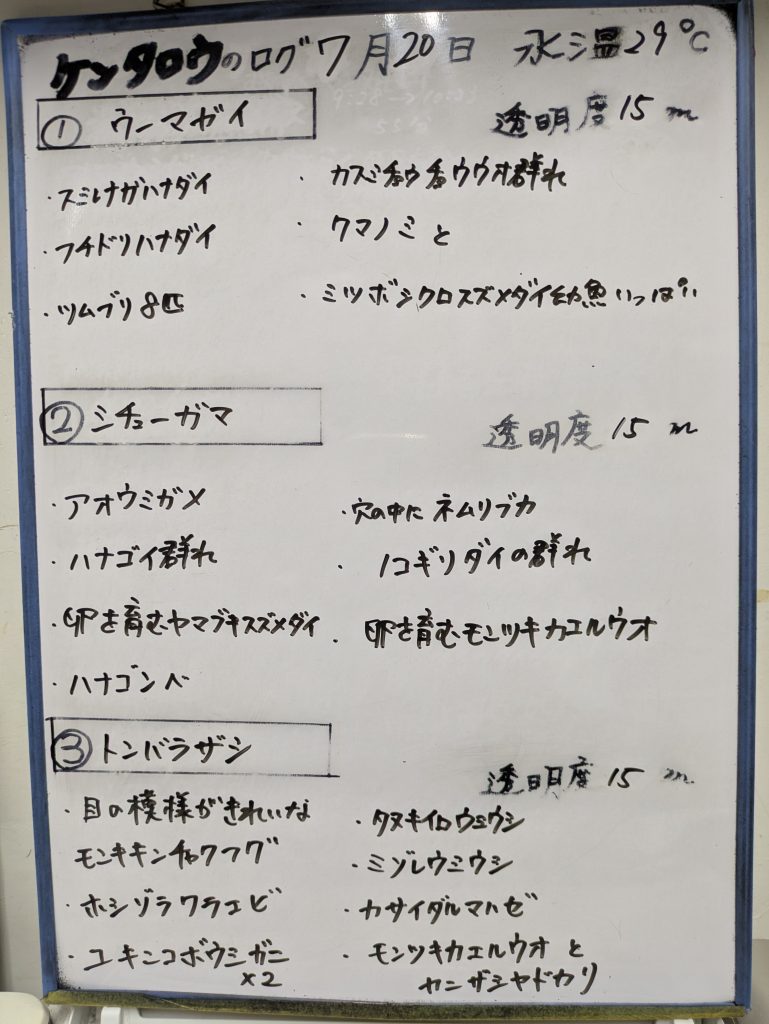 ケンタロウのログ 7月20日 水温29℃
① ウーマガイ
透明度 15 m
・スミレナガハナダイ
・フチドリハナダイ
・ツムブリ 8匹
・カスミチョウチョウウオ群れ
・クマノミ と
・ミツボシクロスズメダイ幼魚いっぱい
② シチューガマ
透明度 15 m
・アオウミガメ
・ハナゴイ群れ
・卵を育むヤマブキスズメダイ
・ハナゴンベ
・穴の中に ネムリブカ
・ノコギリダイの群れ
・卵を育むモンツキカエルウオ
③ トンバラザシ
透明度 15 m
・目の模様がきれいな
モンキキンチャクフグ
・ホシゾラワラエビ
・ユキンコボウシガニ
×2
・タヌキイロウミウシ
・ミゾレウミウシ
・カサイダルマハゼ
・モンツキカエルウオ と
カンザシヤドカリ